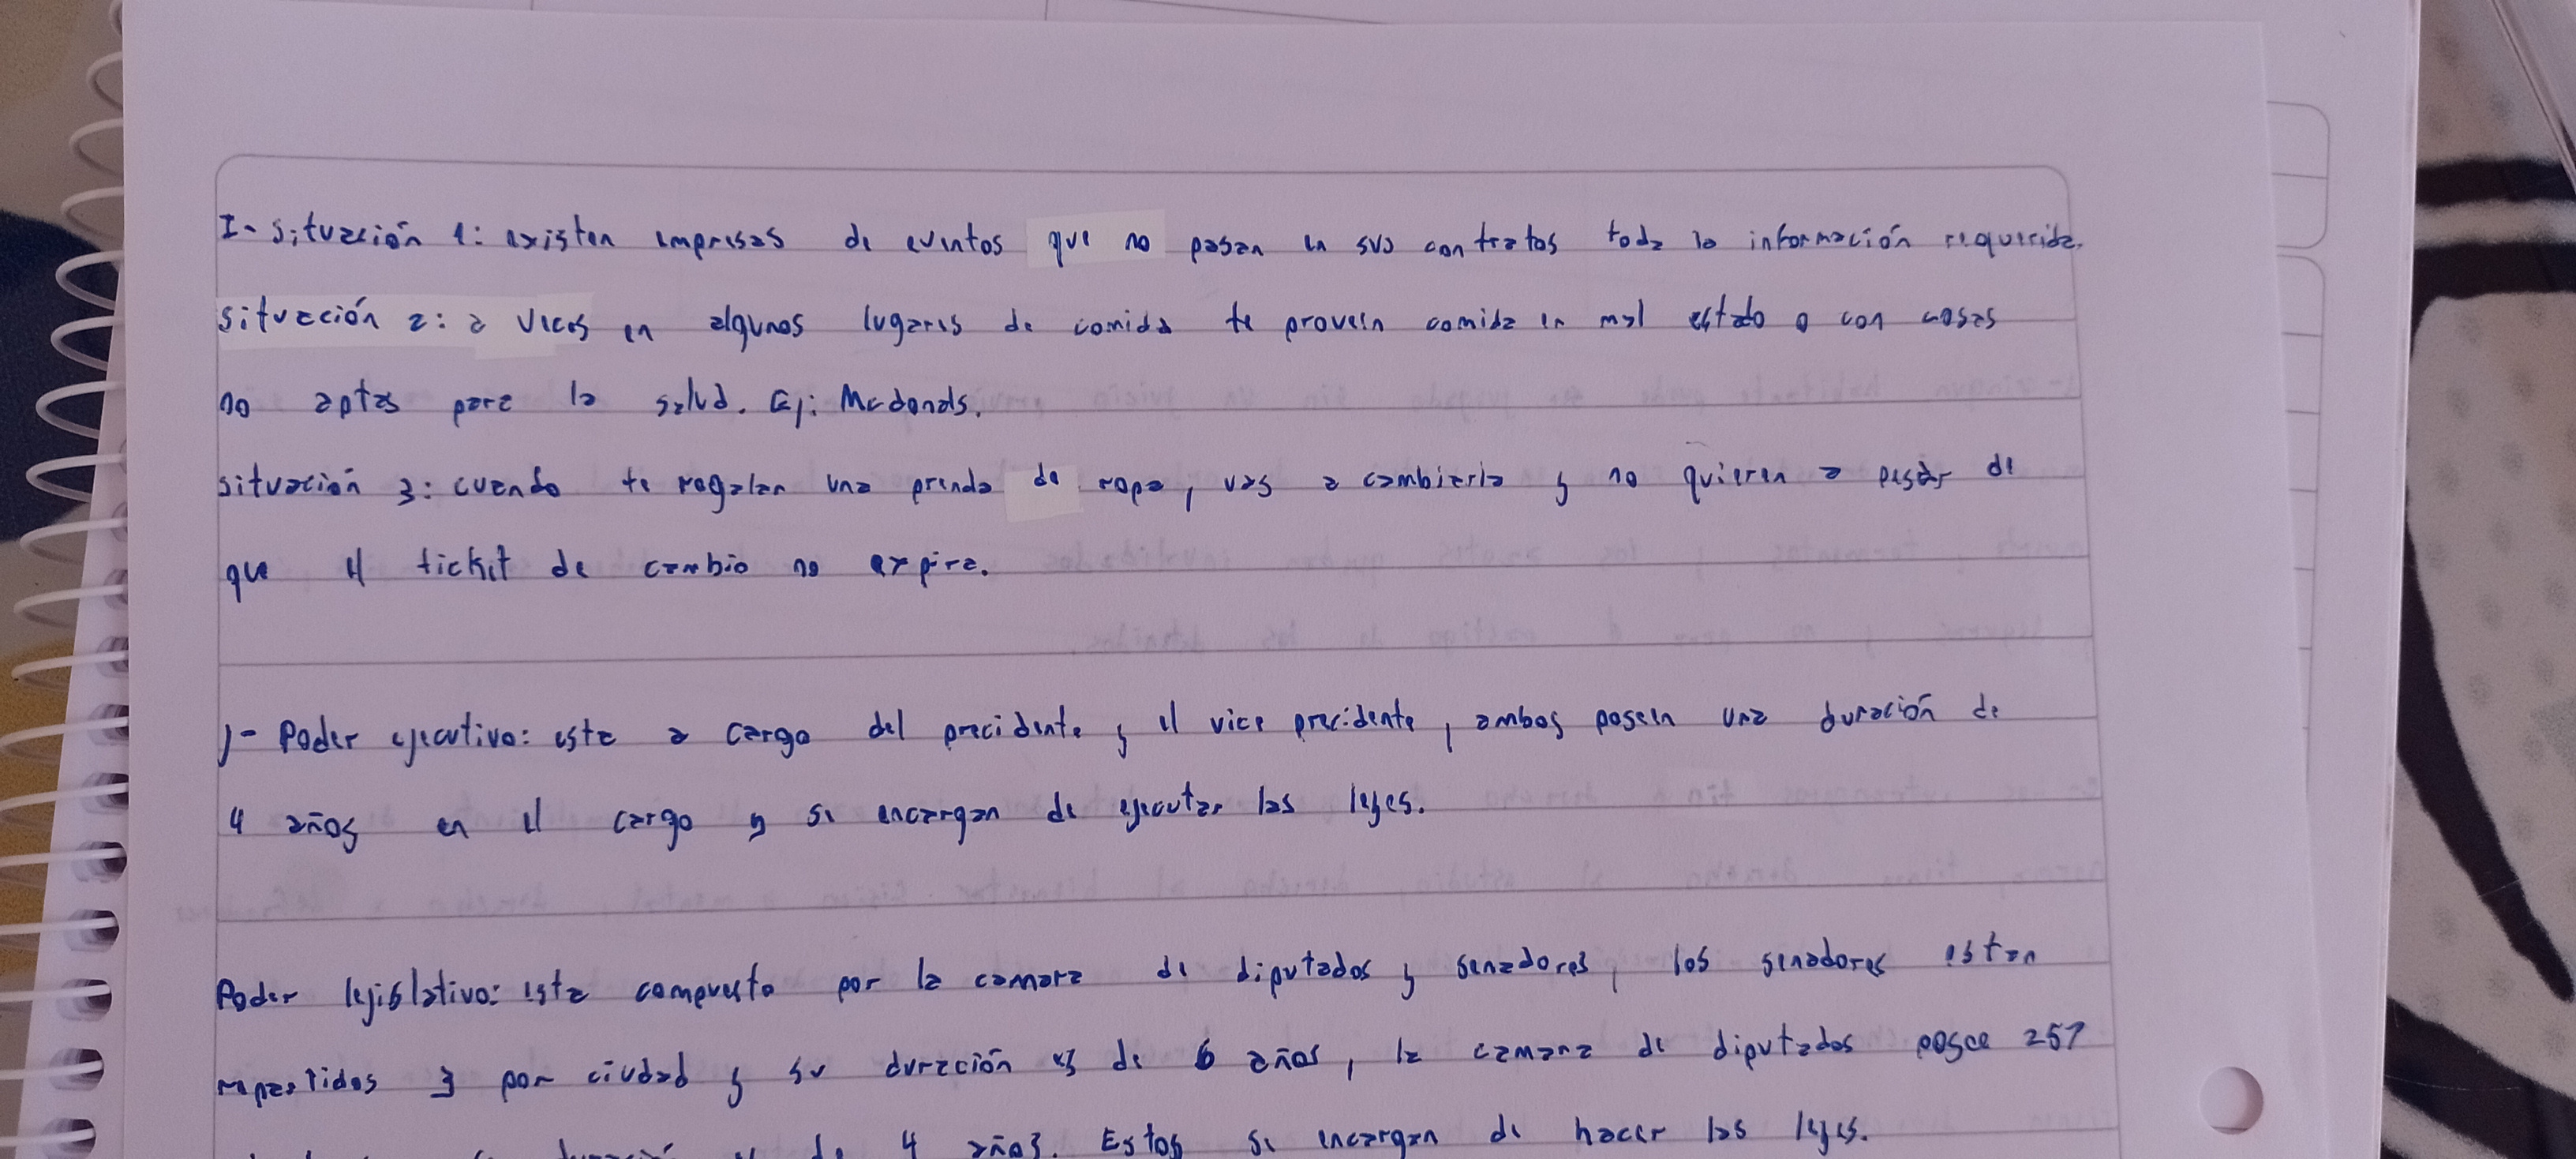 I- situación 1: existen empresas de eventos que no pasan en sus contratos toda la información requerida.
situación 2: a veces en algunos lugares de comida te proveen comida en mal estado o con cosas
no aptas para la salud. Ej: Mcdonals.
situación 3: cuando te regalan una prenda de ropa, vas a cambiarla y no quieren a pesar de
que el ticket de cambio no expira.
J- Poder ejecutivo: esta a cargo del precidente y el vice precidente, ambos poseen una duración de
4 años en el cargo y se encargan de ejecutar las leyes.
Poder lejislativo: esta compuesto por la camara de diputados y senadores, los senadores estan
repartidos 3 por ciudad y su duración es de 6 años, la camara de diputados posee 257
duración de 4 años. Estos se encargan de hacer las leyes.